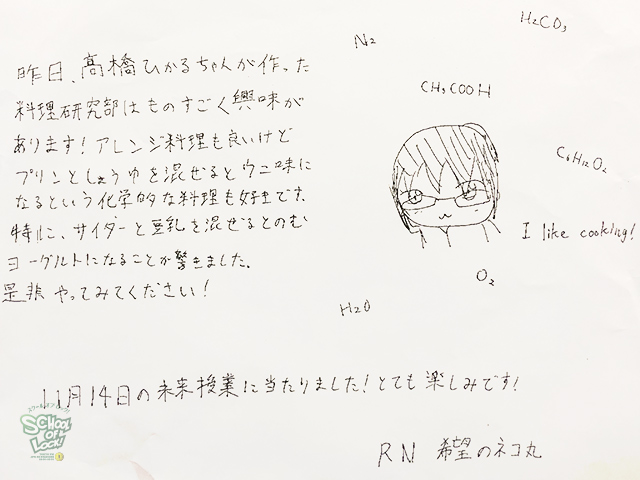 昨日、高橋ひかるちゃんが作った
料理研究部はものすごく興味が
あります！アレンジ料理も良いけど
プリンとしょうゆを混ぜるとウニ味に
なるという化学的な料理も好きです。
特に、サイダーと豆乳を混ぜるとのむ
ヨーグルトになることが驚きました。
是非やってみてください！
N₂
H₂CO₃
CH₃COOH
C₆H₁₂O₂
I like cooking!
O₂
H₂O
11月14日の未来授業に当たりました！とても楽しみです！
RN 希望のネコ丸
SCHOOL
OF
LOCK!